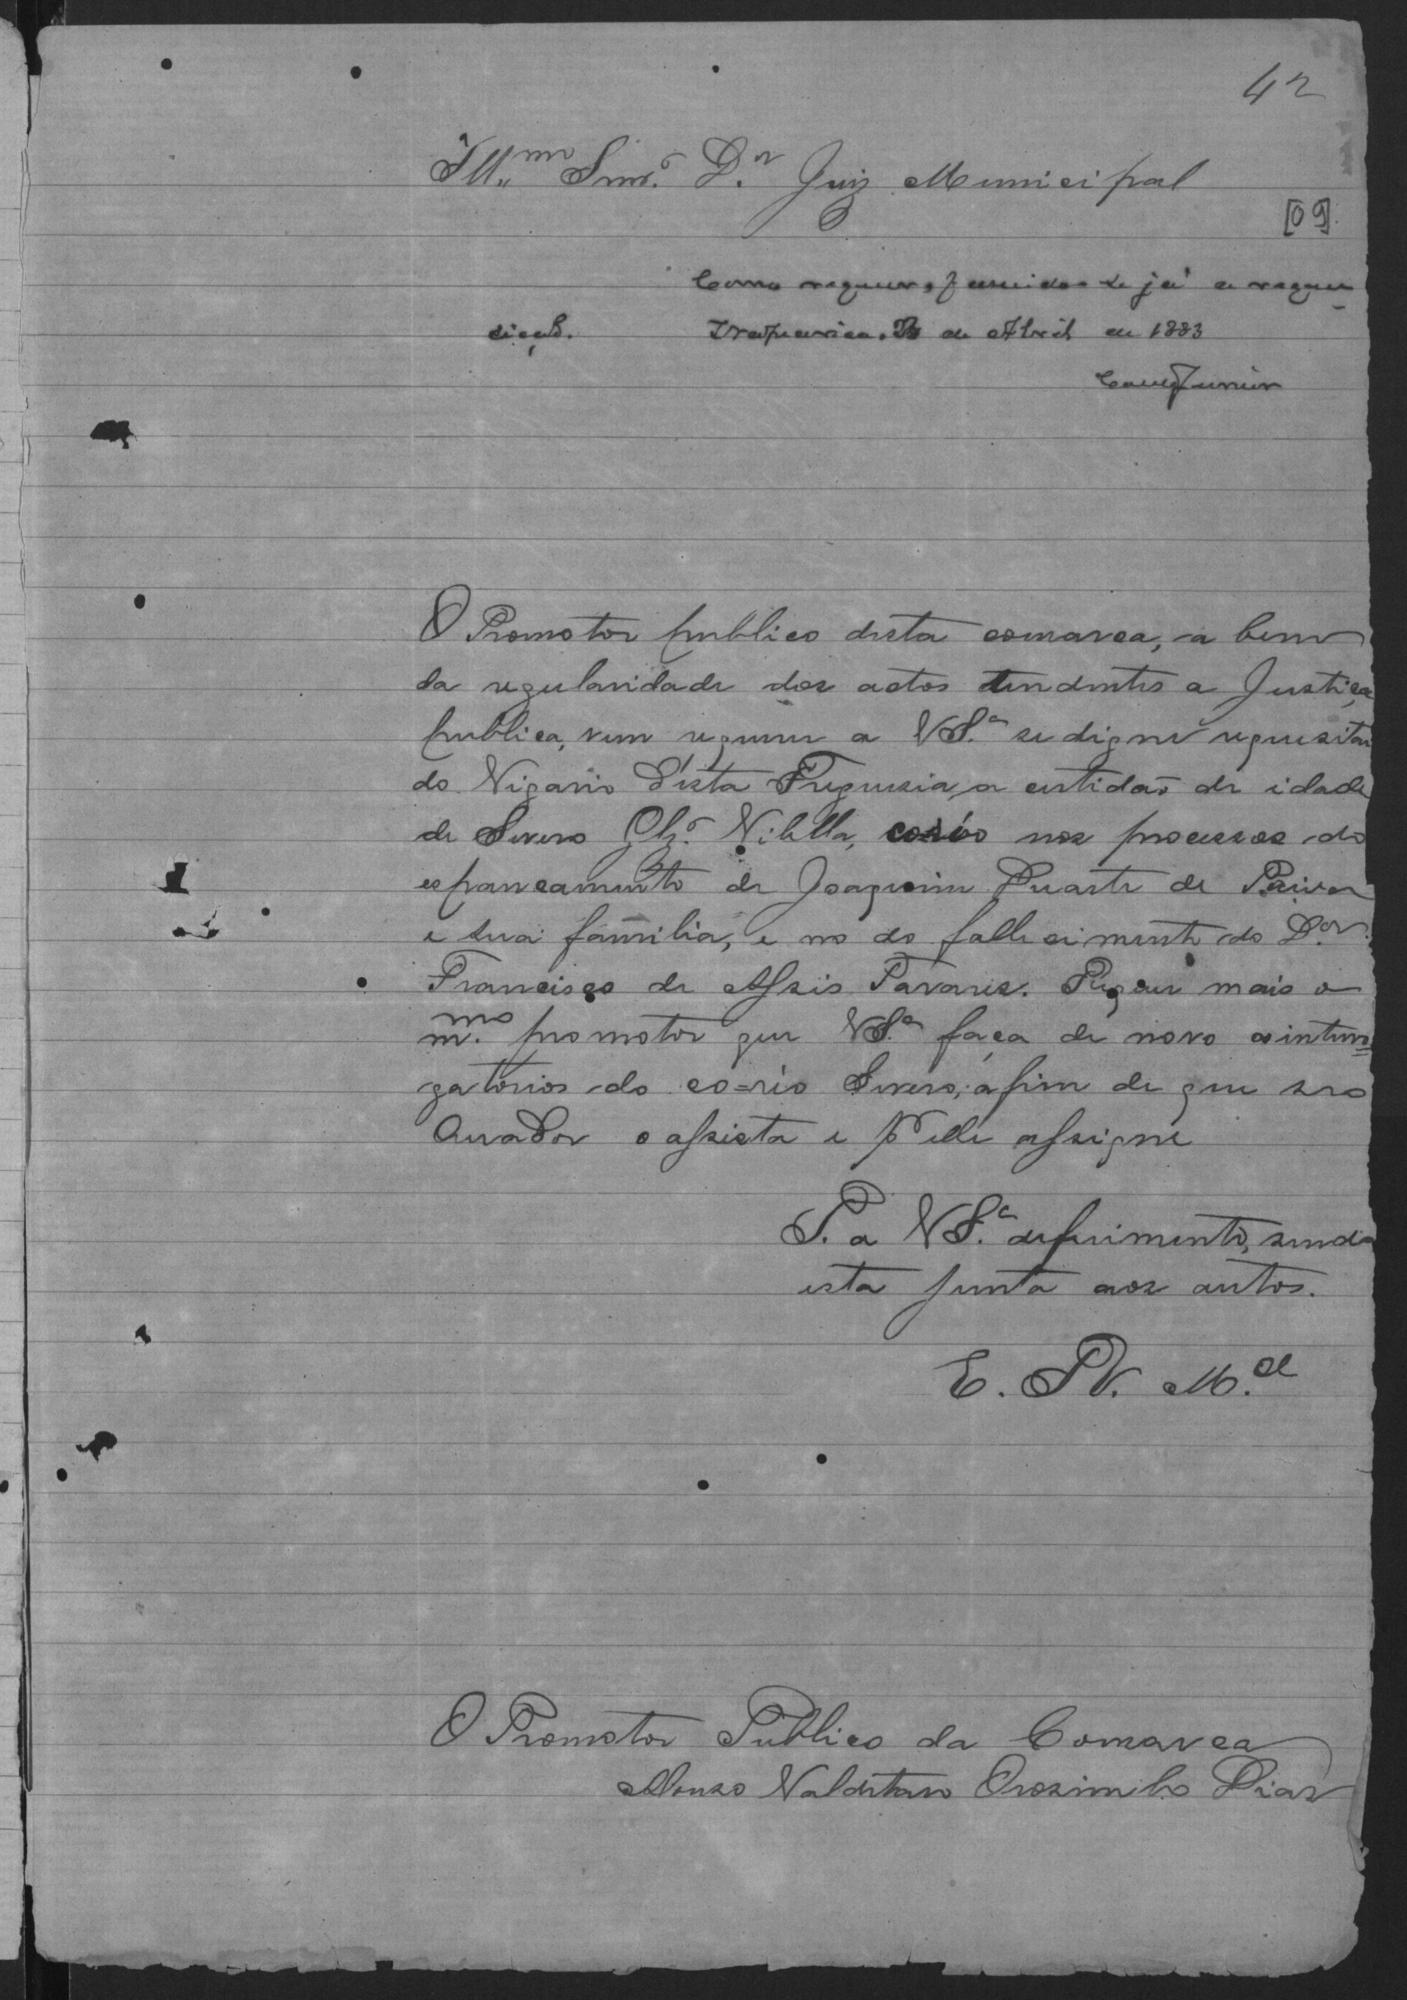 42
Ill.mo Snr.o D.or Juiz Municipal
[09]
Como requer, fazendo-se já a requi-
sição. Itaparica, de Abril de 1883
Junior
O Promotor publico desta comarca, a bem
da regularidade dos actos tendentes a Justiça
publica, vem requerer a VS.a se digne requesitar
do Vigario d'esta Freguesia, a certidaõ de idade
de Severo Glz.o Vilella, coréo nos processos do
espancamento de Joaquim Duarte de Paiva
e sua familia, e no do fallecimento do D.or
Francisco de Assis Tavares. Requer mais o
m.mo promotor que VS.a faça de novo os interro=
gatorios do co=réo Severo, afim de que seo
Curador o assista e p.r elle assigne
P. a VS.a deferimento, sendo
esta junta aos autos.
E. R. M.ce
O Promotor Publico da Comarca
Alonso Valdetaro Orosimbo Dias